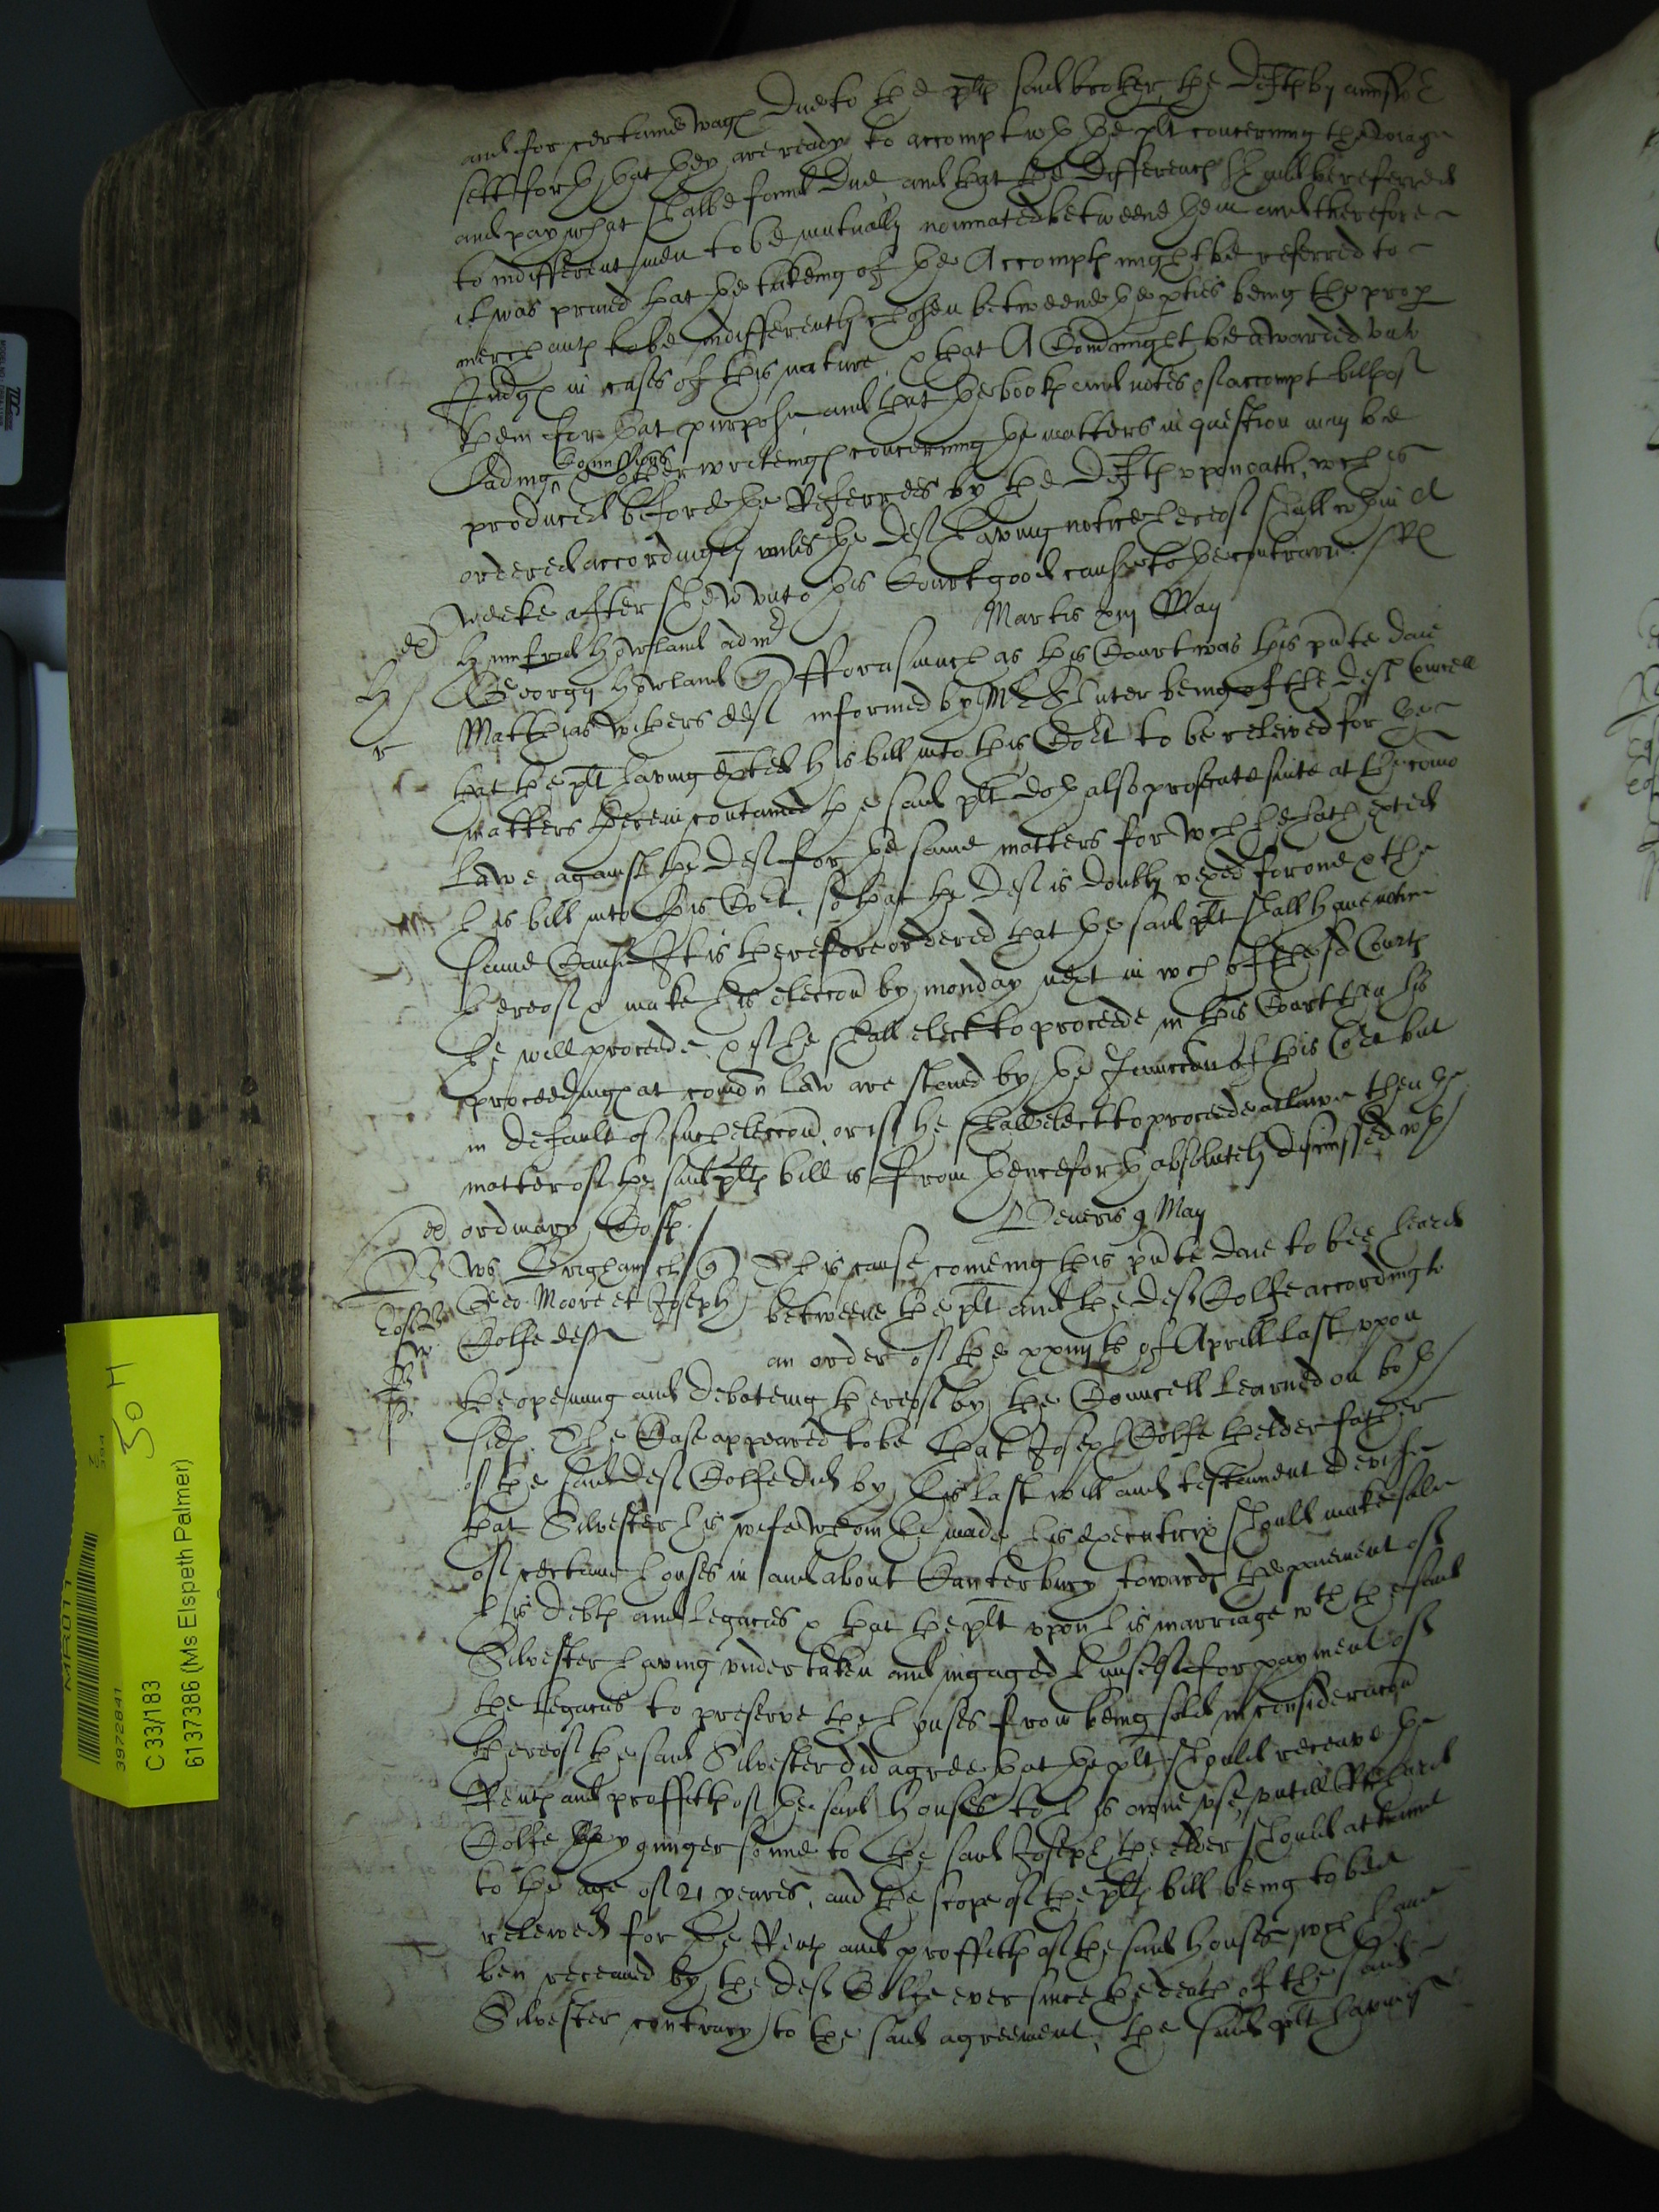 and for certaine wag due to the plt said brother, the defts by answer
sett forth that they are ready to accompt wth the plt concerning the voiage
and pay what shalbe found due and that the differences shall bee referred
to indifferent men to be mutually nominated betweene them and therefore
it was praied that the takeing of the Accompts might be referred to
merchants to be indifferently chosen betweene the pties being the prop
Judges in cases of this nature, & that A Comd might be awarded unto
them for that purpose and that the books and notes of accompt bills of
Lading Comissions & other writeings concerning the matters in question may be
produced before the Referrees by the Defts upon oath, wch is
ordered accordingly unles the deft having notice hereof shall wthin A
weeke after shew unto this Court good cause to the contrary
Martis May
Humfrid Howland admr
Georgij Howland Quer fforasmuch as this Court was this pnte daie
Matthias deft informed by Mr being of the defts Councell
that the plt having exhted his bill into this Cort to be releived for the
matters therein contained the said plt doth also prosecute suite at the comon
Lawe against the deft for the same matters for wch he hath exhted
his bill into this Cort, so that the deft is doubly vexed for one & the
same Cause It is therefore ordered that the said plt shall have notice
hereof & make his eleccon by monday next in wch of these Courts
he will proceede, & if he shall elect to proceede in this Court then his
proceedings at comon law are staied by the Iniuncon of this Cort but
in default of such eleccon, or if he shall elect to proceede at lawe then the
matter of the said plts bill is from henceforth absolutely dismissed wth
ordinary Costs
Veneris 9 May
Ws Brigham Quer This cause comeing this pnte daie to bee heard
Geo: Moore et Joseph betweene the plt and the deft Colfe according to
Colfe defts an order of the xxiiijth of Aprill last, upon
the opening and debateing thereof by the Councell learned on both
sides. The Case appeared to be that Joseph Colfe thelder father
of the said deft Colfe did by his last will and testament devise
that Silvester his wife whom he made his executrix should make sale
of certaine houses in and about Canterbury towards the paiement of
his debts and legacies & that the plt upon his marriage wth the said
Silvester having undertaken and ingaged himselfe for payment of
the legacies to preserve the houses from being sold in consideracon
thereof the said Silvester did agree that the plt should receave the
Rents and proffitts of the said houses to his owne use, untill Richard
Colfe yonger sonne to the said Joseph the elder should attaine
to the age of 21 yeares, and the scope of the plts bill being to bee
releived for the Rents and proffitts of the said houses wch have
ben received by the deft Colfe ever since the death of the said
Silvester contrary to the said agreement, the said plt having
3972841
C 33/183
6137386 (Ms Elspeth Palmer)
50 H